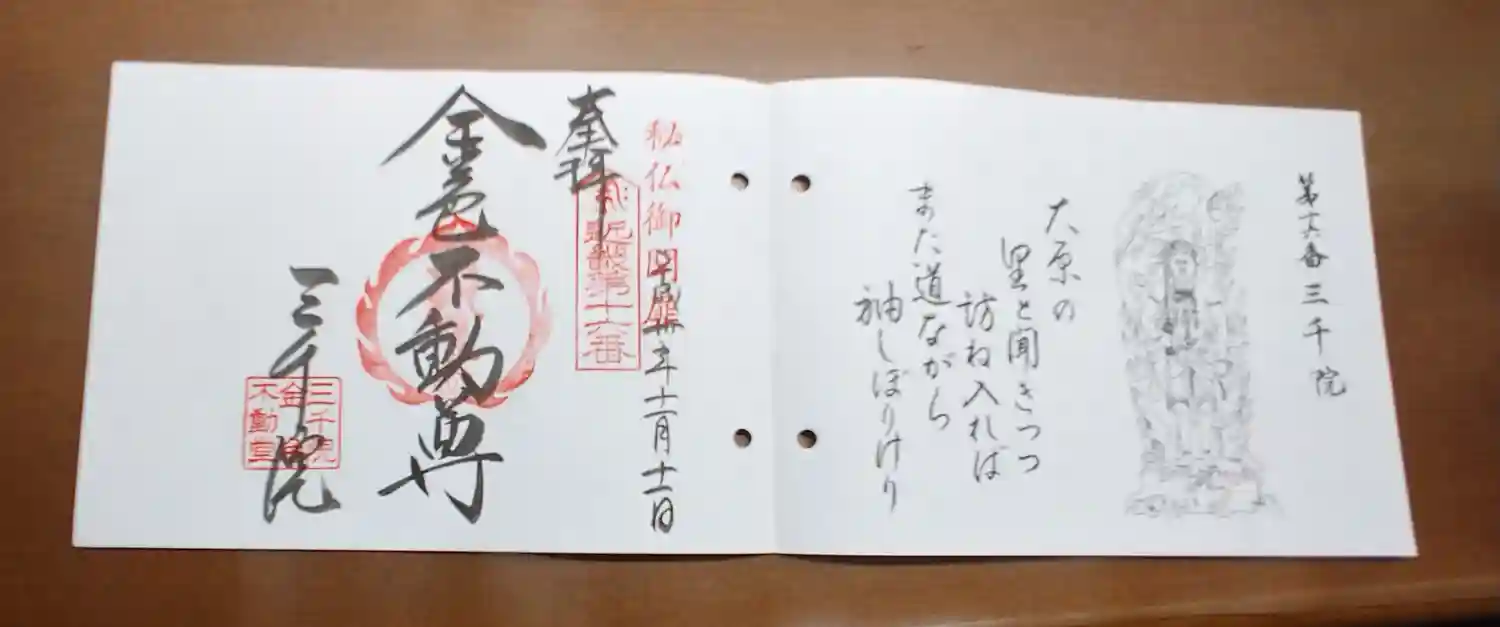 第十六番 三千院
大原の
里と聞きつつ
訪ね入れば
また道ながら
袖しぼりけり
秘仏御開扉
年十一月十一日
奉拝
近畿第十六番
金色不動尊
三千院
三千院
金色
不動堂